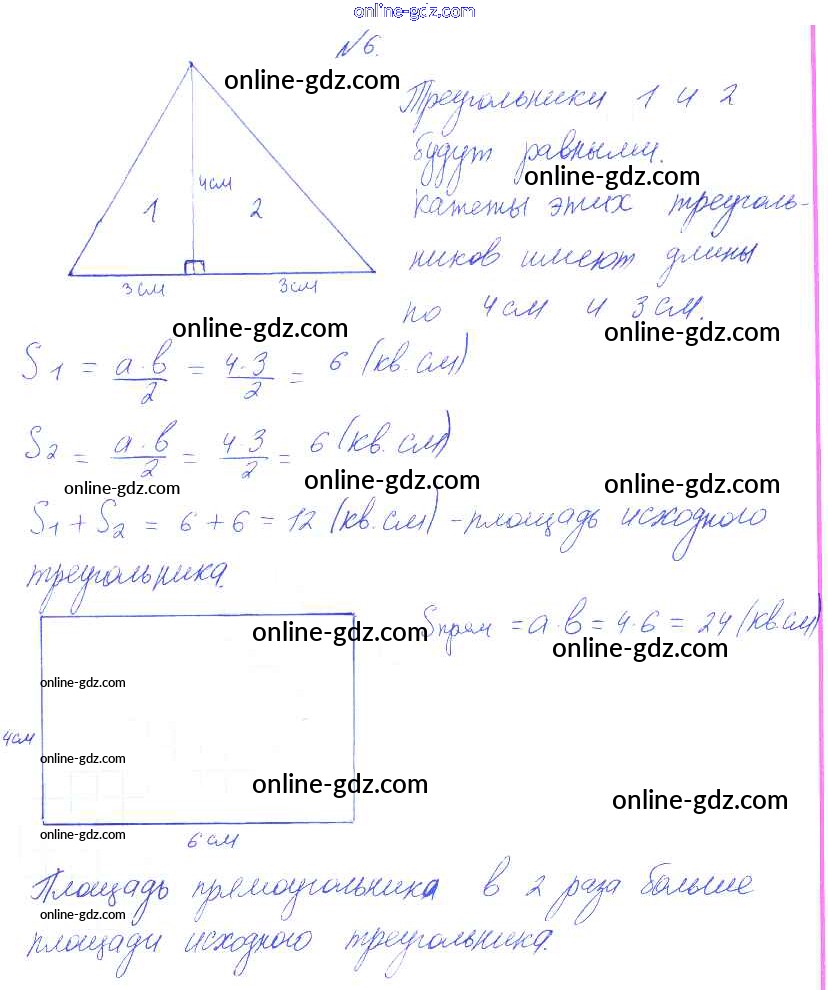 online-gdz.com
№6.
online-gdz.com
Треугольники 1 и 2
будут равными.
online-gdz.com
катеты этих треуголь-
ников имеют длины
по 4см и 3см.
4см
1
2
3см
3см
online-gdz.com
online-gdz.com
S1 = a·b/2 = 4·3/2 = 6 (кв.см)
S2 = a·b/2 = 4·3/2 = 6 (кв.см)
online-gdz.com
online-gdz.com
online-gdz.com
S1 + S2 = 6 + 6 = 12 (кв.см) - площадь исходного
треугольника.
Sпрям = a·b = 4·6 = 24 (кв.см)
online-gdz.com
online-gdz.com
online-gdz.com
4см
online-gdz.com
online-gdz.com
online-gdz.com
online-gdz.com
6см
Площадь прямоугольника в 2 раза больше
online-gdz.com
площади исходного треугольника.